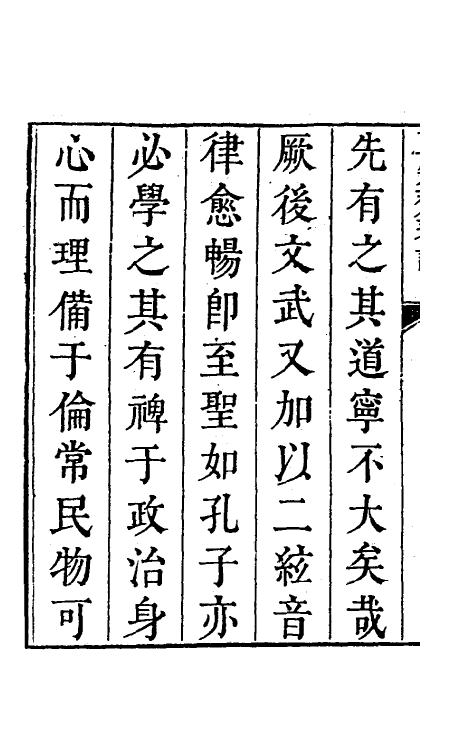 先有之其道寧不大矣哉
厥後文武又加以二絃音
律愈暢卽至聖如孔子亦
必學之其有裨于政治身
心而理備于倫常民物可